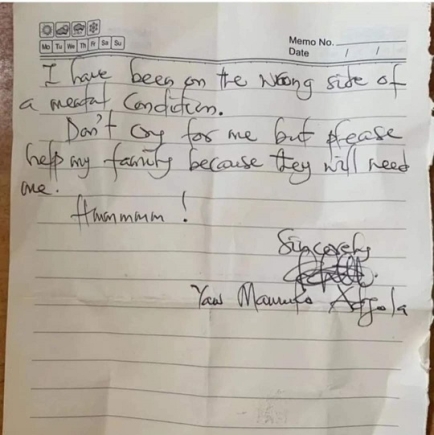 Mo Tu We Th Fr Sa Su
Memo No.
Date / /
I have been on the wrong side of
a mental Condition.
Don't Cry for me but please
help my family because they will need
me.
Hmmmmm !
Sincerely
Yaw